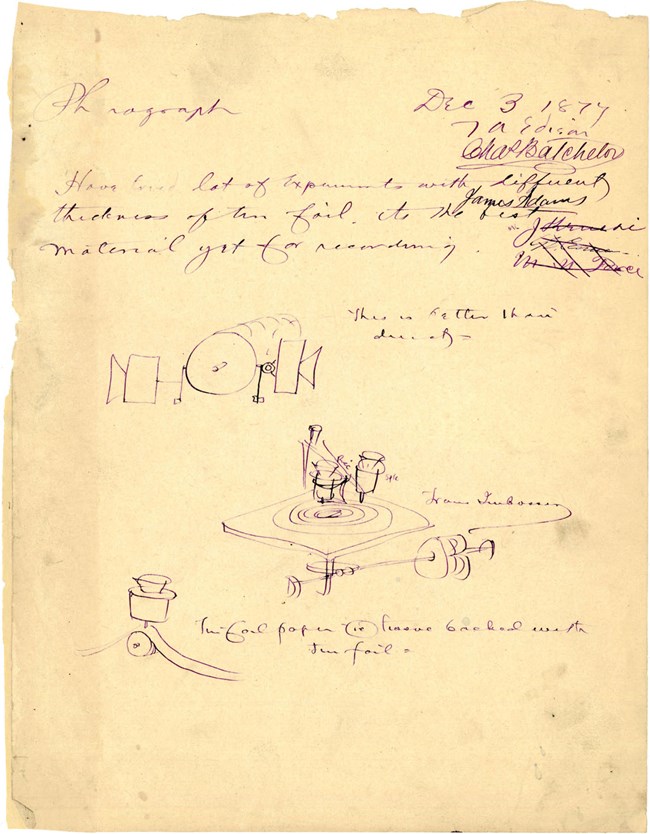 Phonograph
Dec 3 1877
T A Edison
Chas Batchelor
James Adams
Have tried lot of Expmnts with different
thickness of tin foil its the best
material yet for recording.
This is better than
direct =
Rec
Spk
from Embosser
Tin foil paper ie tissue backed with
tin foil =